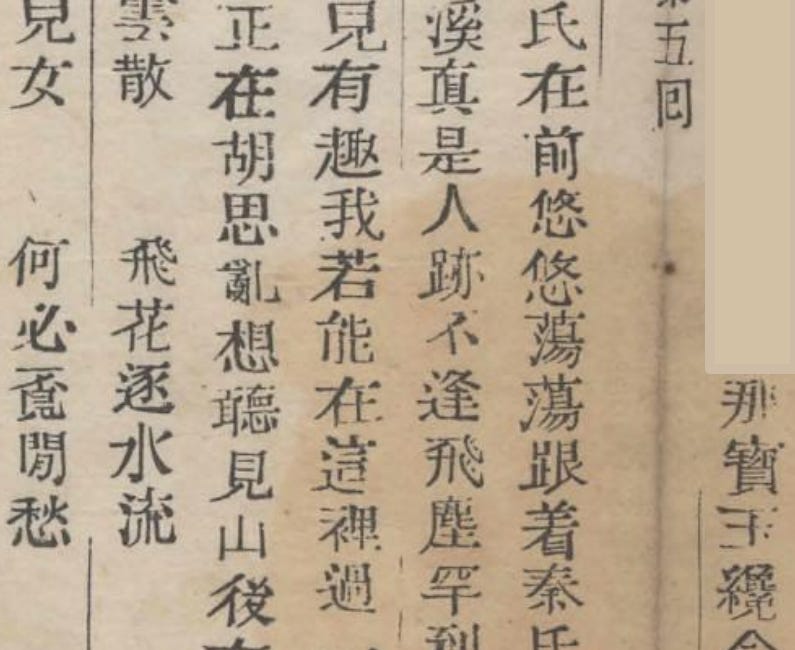 那寶玉纔合
第五回
氏在前悠悠蕩蕩跟着秦氏
溪真是人跡不逢飛塵罕到
見有趣我若能在這裡過一
正在胡思亂想聽見山後有
雲散　飛花逐水流
兒女　何必覔閒愁